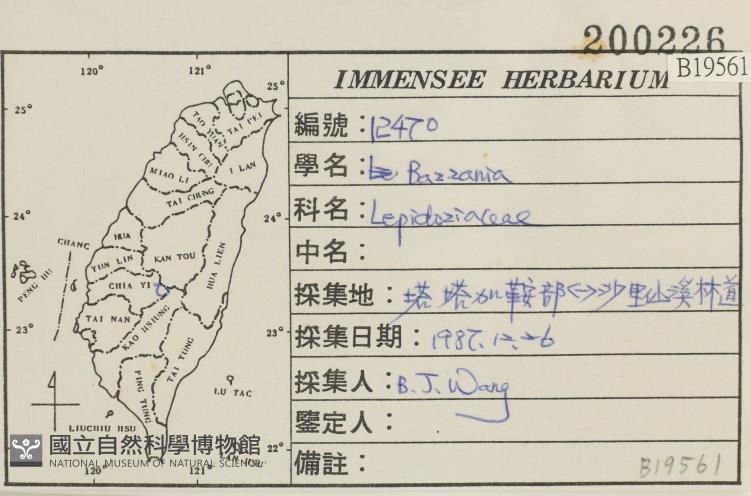 200226
B19561
IMMENSEE HERBARIUM
編號：12470
學名：Bazzania
科名：Lepidoziaceae
中名：
採集地：塔塔加鞍部<->沙里仙溪林道
採集日期：1987.12.26
採集人：B.J. Wang
鑒定人：
備註：
B19561
120° 121°
25° 25°
TAO YUAN
TAI PEI
HSIN CHU
MIAO LI
I LAN
TAI CHUNG
24° 24°
CHANG HUA
KAN TOU
HUA LIEN
YUN LIN
PENG HU
CHIA YI
TAI NAN
KAO HSIUNG
23° 23°
TAI TUNG
PING TUNG
LU TAO
LIUCHIU HSU
LAN HSU
22°
120° 121°
國立自然科學博物館
NATIONAL MUSEUM OF NATURAL SCIENCE